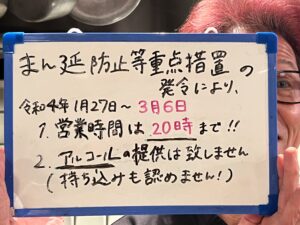 まん延防止等重点措置の
発令により、
令和4年1月27日〜3月6日
1. 営業時間は20時まで!!
2. アルコールの提供は致しません
(持ち込みも認めません!)